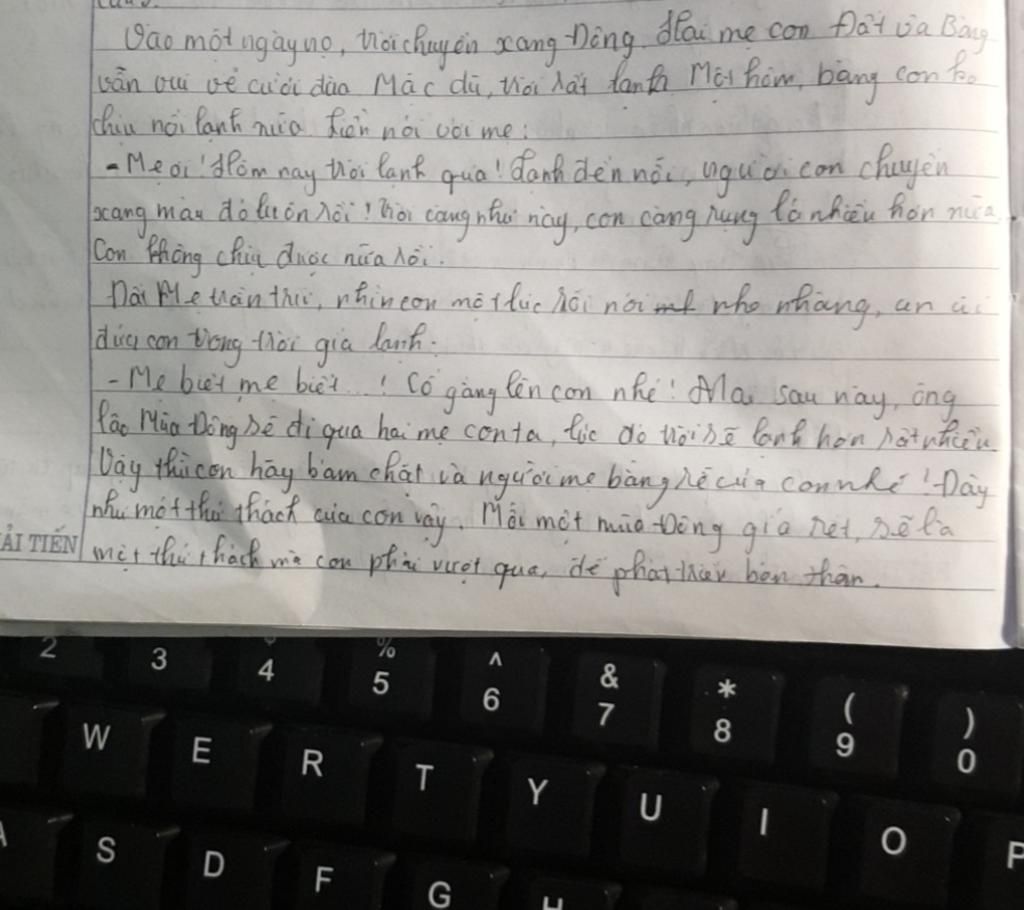 Vào một ngày nọ, trời chuyển xang Đông. Hai mẹ con Đất và Bàng
vẫn vui vẻ cười đùa Mặc dù, trời rất lạnh Một hôm, bàng con ko
chịu nổi lạnh nữa liền nói với mẹ:
- Mẹ ơi! Hôm nay trời lạnh quá! Lạnh đến nỗi, người con chuyển
xang màu đỏ luôn rồi! Trời càng như này, con càng rụng lá nhiều hơn nữa
Con không chịu được nữa rồi.
Mẹ trần nhìn con một lúc rồi nói nhẹ nhàng, an ủi
đứa con trong trời giá lạnh:
- Mẹ biết mẹ biết...! Cố gàng lên con nhé! Mai sau này, ông
lão Mùa Đông sẽ đi qua hai mẹ con ta, lúc đó trời sẽ lạnh hơn rất nhiều
Vậy thì con hãy bám chặt và người mẹ bằng rễ của con nhé! Đây
như một thử thách của con vậy. Mỗi một mùa Đông giá rét, sẽ là
ẢI TIẾN
một thử thách mà con phải vượt qua, để phát triển bản thân.
2 3 $ 4 % 5 ^ 6 & 7 * 8 ( 9 ) 0
W E R T Y U I O P
A S D F G H